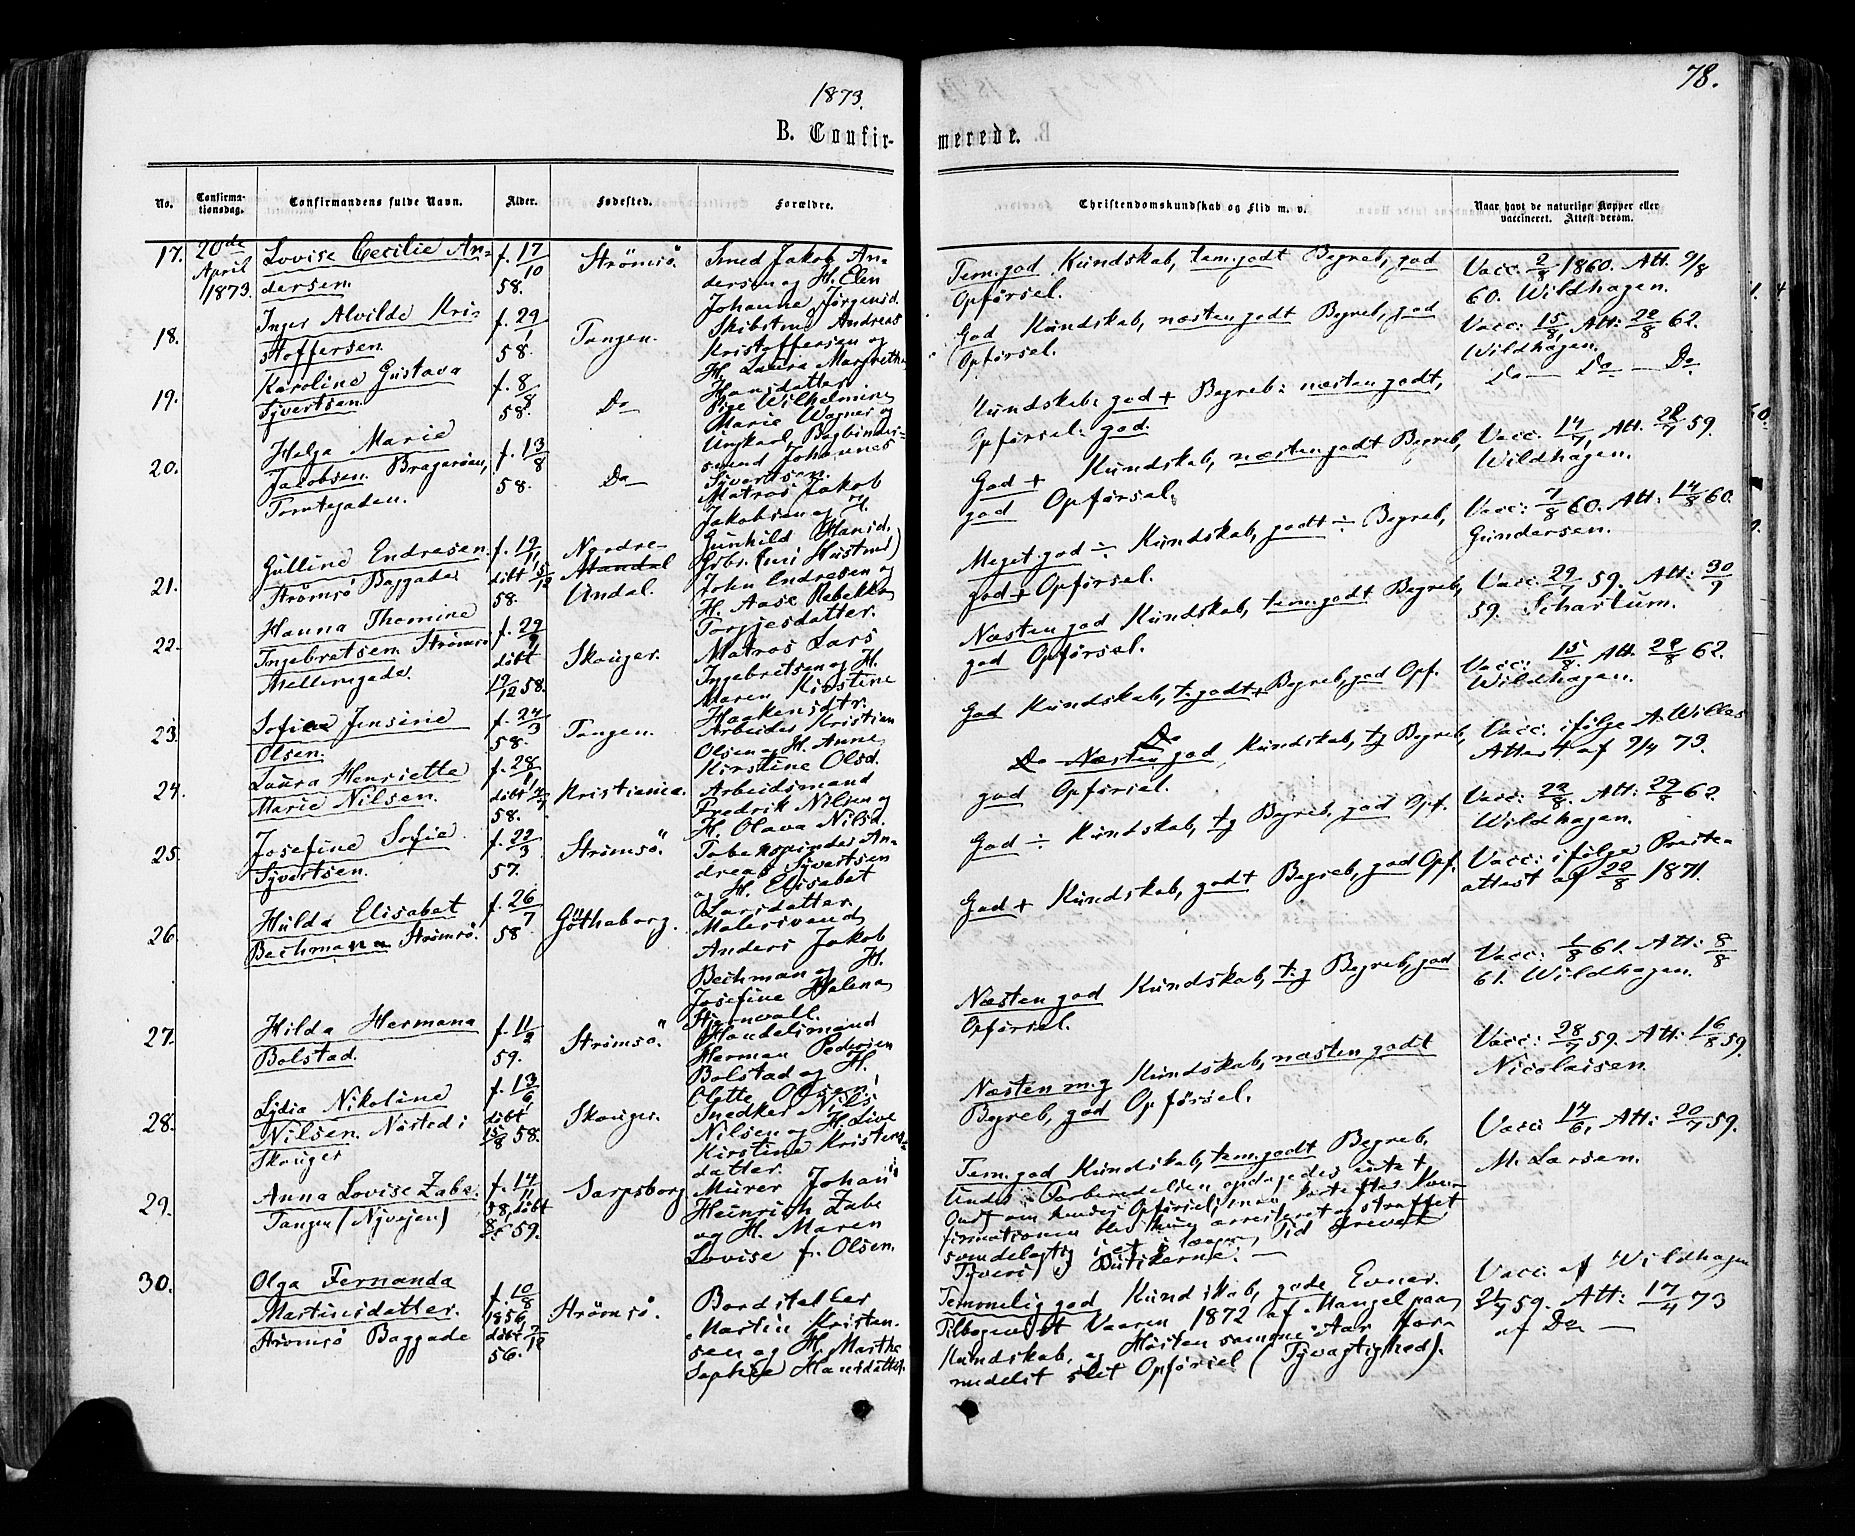 1873.
78.
B. Confirmerede.
No.
Confirmationsdag.
Confirmandens fulde Navn.
Alder.
Fødested.
Forældre.
Christendomskundskab og Flid m. v.
Naar havt de naturlige Kopper eller vaccineret. Attest derom.
17.
20de
April
1873.
Lovise Cecilie An-
dersen.
f. 17/10
58.
Strömsö.
Smed Jakob An-
dersen og H. Elen
Johanne Jørgensd.
Tem. god Kundskab, tem. godt Begreb, god
Opførsel.
Vacc. 2/8 1860. Att. 9/8
60. Wildhagen.
18.
Inger Alvilde Kri-
stoffersen.
f. 29/1
58.
Tangen.
Skibstmd Andreas
Kristoffersen og
H. Laura Margrethe
Hansdatter
God Kundskab, næsten godt Begreb, god
Opførsel.
Vacc: 15/8, Att: 22/8 62.
Wildhagen.
19.
Karoline Gustava
Syvertsen.
f. 8/8
58.
Do
Pige Wilhelmine
Marie Wagner og
Ungkarl, Bogbinder-
svend Johannes
Syvertsen.
Kundskab: god + Begreb: næsten godt,
Opførsel: god.
Do — Do — Do
20.
Helga Marie
Jacobsen. Bragernes,
Torvtegaden.
f. 13/8
58.
Do
Matros Jakob
Jakobsen og H.
Gunhild Hansd.
God + Kundskab, næsten godt Begreb,
god Opførsel.
Vacc. 14/7, Att. 28/7 59.
Wildhagen.
21.
Gulline Endresen.
Strømsö Baggade
f. 19/11
döbt 5/12
58.
Nordre
Undal.
Gbr. (nu Husmd)
John Endresen og
H. Aase Rebekka
Torjesdatter.
Meget god ÷ Kundskab, godt ÷ Begreb,
god + Opførsel.
Vacc: 7/8 60. Att: 14/8 60.
Gundersen.
22.
Hanna Thomine
Ingebretsen. Strömsö
Mellemgade.
f. 29/9
döbt
19/12 58.
Skouger.
Matros Lars
Ingebretsen og H.
Maren Kirstine
Haakensdtr.
Næsten god Kundskab, tem. godt Begreb,
god Opførsel.
Vacc: 29/7 59. Att: 30/9
59. Schartum.
23.
Sofie Jensine
Olsen.
f. 24/3
58.
Tangen.
Arbeider Kristian
Olsen og H. Anne
Kirstine Olsd.
God Kundskab, t. godt + Begreb, god Opf.
Vacc: 15/8. Att. 22/8 62.
Wildhagen.
24.
Laura Henriette
Marie Nilsen.
f. 28/1
döbt 4/4
58.
Kristiania.
Arbeidsmand
Fredrik Nilsen og
H. Olava Nilsd.
Do
Do Næsten god Kundskab, tg Begreb,
god Opførsel.
Vacc. ifølge A. Willes
Attest af 9/4 73.
25.
Josefine Sofie
Syvertsen.
f. 22/3
57.
Strömsö.
Tobakspinder An-
dreas Syvertsen
og H. Elisabet
Larsdatter
God ÷ Kundskab, tg Begreb, god Opf.
Vacc: 22/8. Att: 29/8 62.
Wildhagen.
26.
Hulda Elisabet
Bechmann Strömsö.
f. 26/7
58
Götheborg.
Malersvend
Anders Jakob
Bechman og H.
Josefine Helena
Stjernvall.
God + Kundskab, godt Begreb, god Opf.
Vacc: ifølge Preste-
attest af 22/8 1871.
27.
Hilda Hermana
Bolstad.
f. 11/2
59.
Strömsö.
Handelsmand
Herman Pedersen
Bolstad og H.
Olette Olsen,
Næsten god Kundskab, tg Begreb, god
Opførsel.
Vacc: 1/8 61. Att: 8/8
61. Wildhagen.
28.
Lydia Nikoline
Nilsen. Nøsted i
Skouger
f. 13/6
döbt
15/8 58.
Skouger.
Snedker Nils
Nilsen og H. Live
Kirstine Kristens-
datter.
Næsten m. g Kundskab, næsten godt
Begreb, god Opførsel.
Vacc: 28/7 59. Att: 16/8 59.
Nicolaisen.
29.
Anna Lovise Zabe.
Tangen (Nyvejen)
f. 14/11
58, döbt
59.
Sarpsborg
Murer Johan
Heinrich Zabe
og H. Maren
Lovise f. Olsen.
Tem. god Kundskab, tem. godt Begreb,
Under Forberedelsen opdagedes intet
Ondt om hendes Opførsel, men kort efter Kon-
firmationen blev hun arresteret og straffet
for i længere Tid drevet
Tyveri i Butikerne. —
Vacc: 14/6, Att: 20/7 59.
M. Larsen.
30.
Olga Fernanda
Martinsdatter.
Strømsö Baggade
f. 10/8
1856,
döbt 7/12
56.
Strömsö.
Bordstabler
Martin Kristen-
sen og H. Marthe
Sophie Hansdatter.
Temmelig god Kundskab, gode Evner.
Tilbagevist Vaaren 1872 af Mangel paa
Kundskab, og Høsten samme Aar for-
medelst slet Opførsel (Tyvagtighed).
Vacc. af Wildhagen
21/7 59. Att: 17/4 73
af Do —